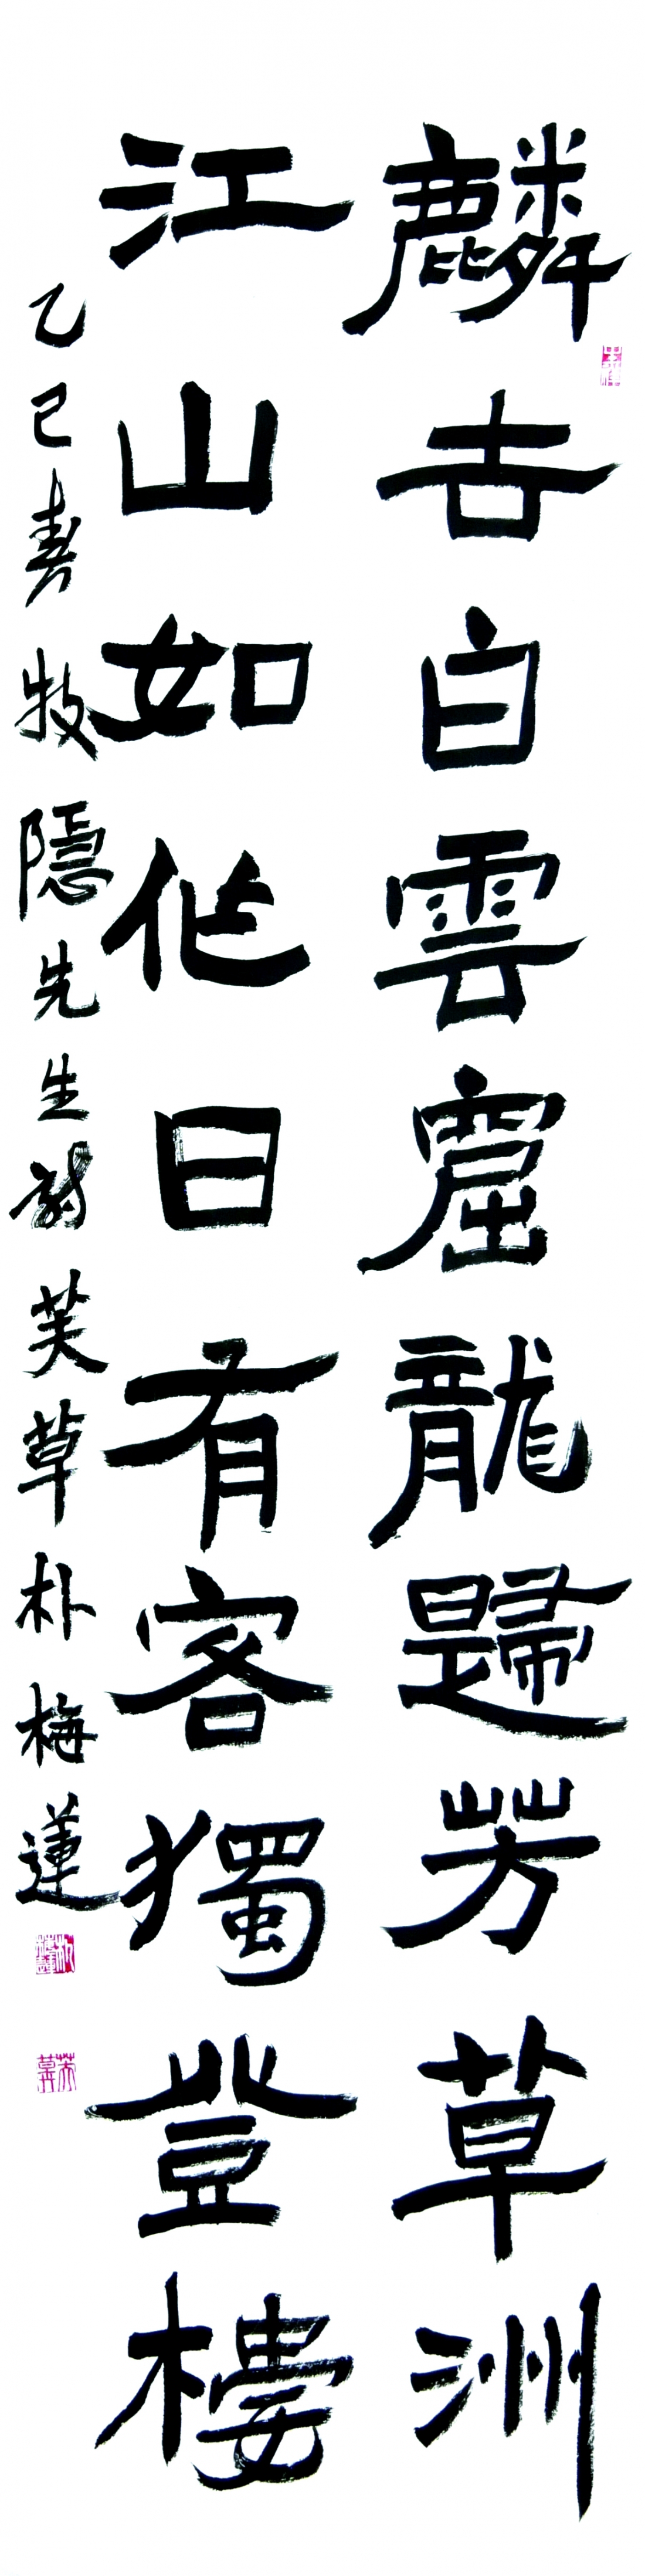 麟去白雲窟龍歸芳草洲
江山如作日有客獨登樓
乙巳春牧隱先生詩芙草朴梅蓮